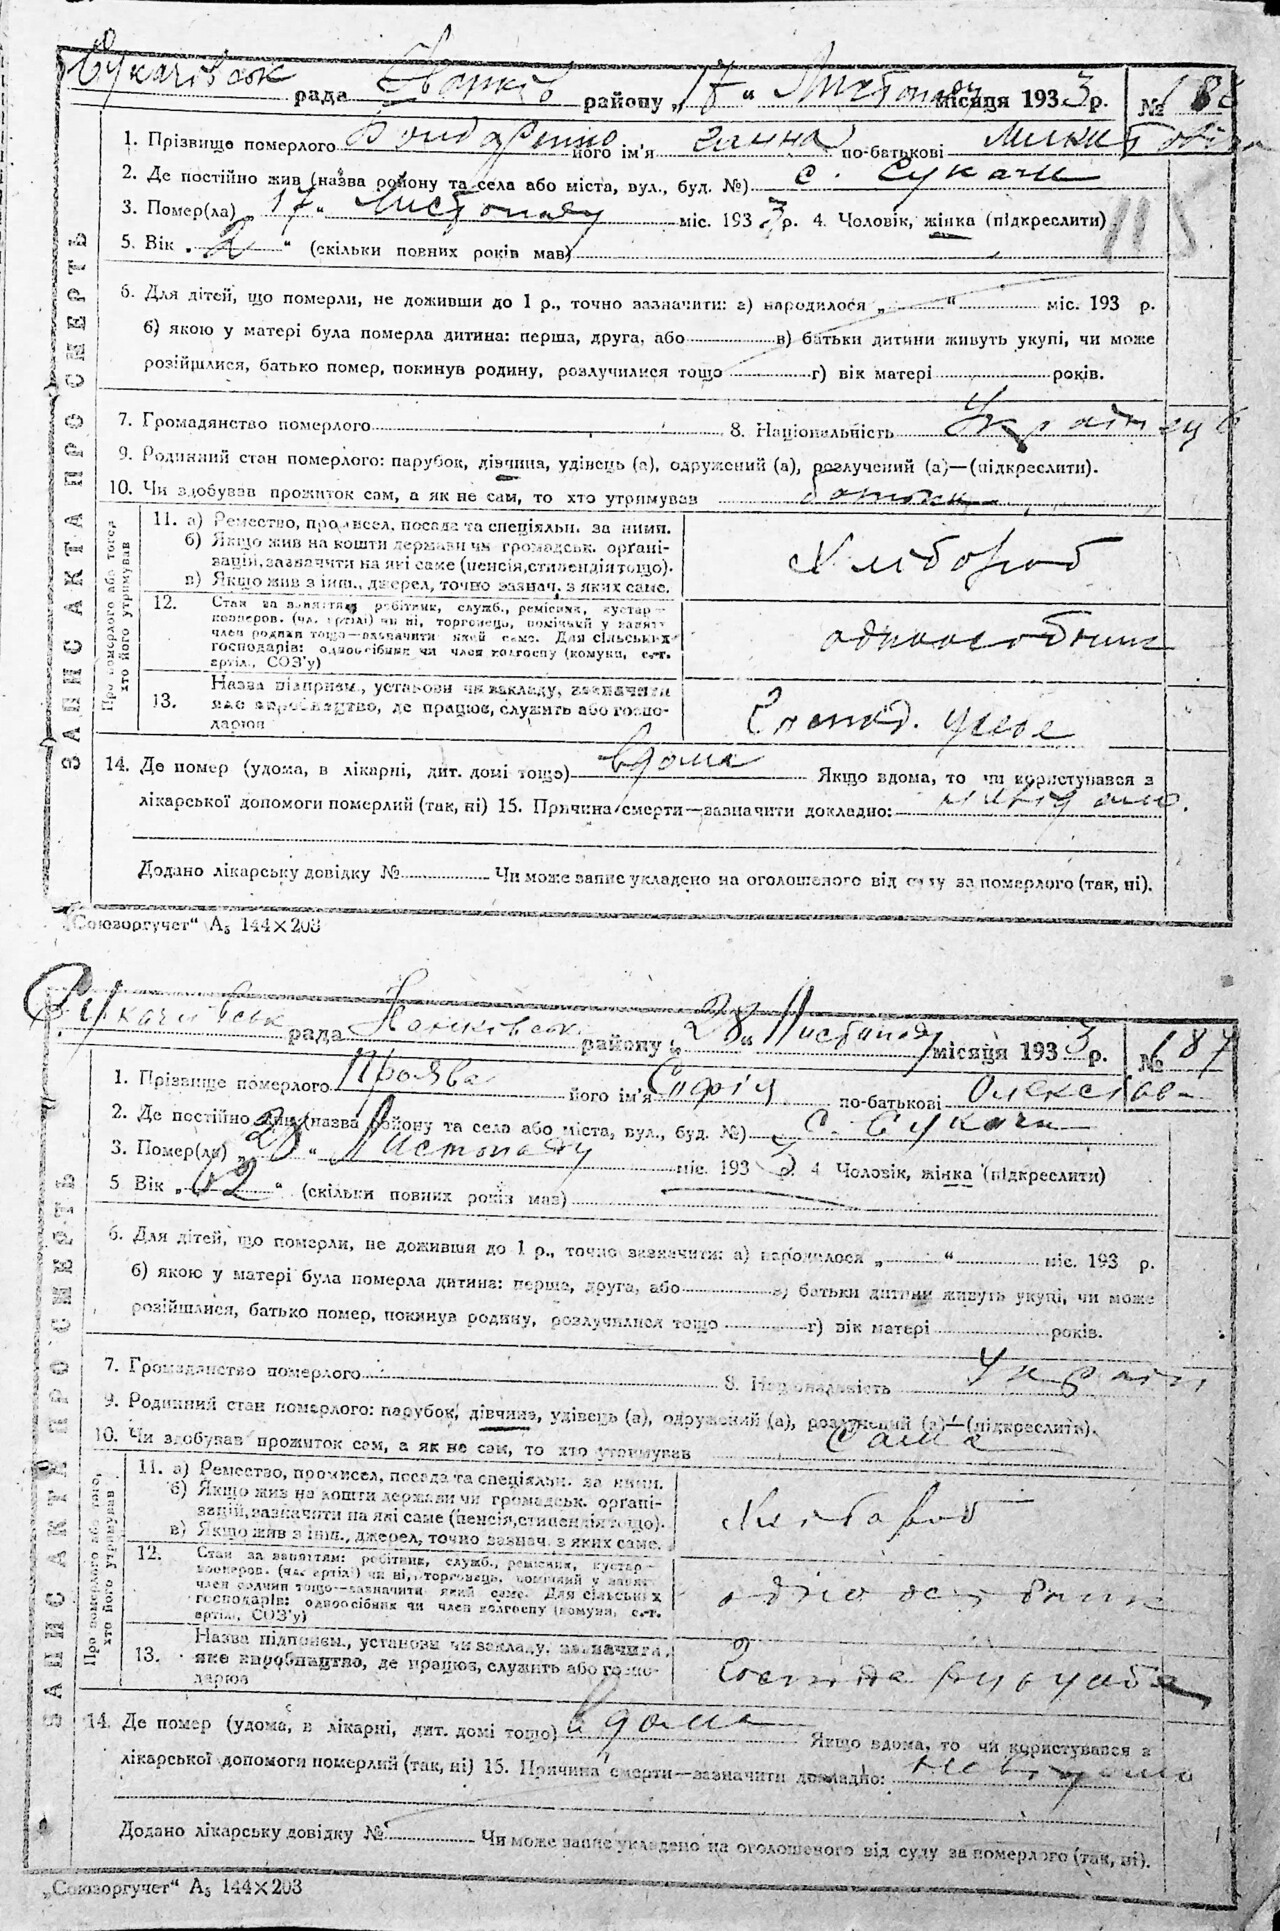 Сукачівськ рада Іванків району „17“ Листопаду місяця 1933 р. № 186
1. Прізвище померлого Бондаренко його ім'я Ганна по-батькові Микитовна
2. Де постійно жив (назва району та села або міста, вул., буд. №) с. Сукачи
3. Помер(ла) „17“ Листопаду міс. 1933 р. 4. Чоловік, жінка (підкреслити)
115
5. Вік „2“ (скільки повних років мав)
6. Для дітей, що померли, не доживши до 1 р., точно зазначити: а) народилося „ “ міс. 193 р.
б) якою у матері була померла дитина: перша, друга, або в) батьки дитини живуть укупі, чи може
розійшлися, батько помер, покинув родину, розлучилися тощо г) вік матері років.
7. Громадянство померлого 8. Національність Українець
9. Родинний стан померлого: парубок, дівчина, удівець (а), одружений (а), розлучений (а)—(підкреслити).
10. Чи здобував прожиток сам, а як не сам, то хто утримував батьки
ЗАПИС АКТА ПРО СМЕРТЬ
Про померлого або того, хто його утримував
11. а) Ремество, промисел, посада та спеціяльн. за ними.
б) Якщо жив на кошти держави чи громадськ. органі-
зацій, зазначити на які саме (пенсія, стипендія тощо).
в) Якщо жив з інш., джерел, точно зазнач. з яких саме.
Хлібороб
12. Стан за заняттям: робітник, служб., ремісник, кустар—
кооперов. (чл. артілі) чи ні, торговець, помічний у занят.
член родини тощо—зазначити який саме. Для сільських
господарів: одноосібник чи член колгоспу (комуни, с.-г.
артіл., СОЗ'у)
одноособник
13. Назва підприєм., установи чи закладу, зазначити
яке виробництво, де працює, служить або госпо-
дарює
Господ. у себе
14. Де помер (удома, в лікарні, дит. домі тощо) вдома Якщо вдома, то чи користувався з
лікарської допомоги померлий (так, ні) 15. Причина смерти—зазначити докладно: невідомо.
Додано лікарську довідку № Чи може запис укладено на оголошеного від суду за померлого (так, ні).
„Союзоргучет“ А₅ 144×203
Сукачівськ рада Іванковськ району „28“ Листопаду місяця 1933 р. № 187
1. Прізвище померлого Проява його ім'я Софія по-батькові Олексіов-
2. Де постійно жив (назва району та села або міста, вул., буд. №) с. Сукачи
3. Помер(ла) „28“ Листопаду міс. 1933 4. Чоловік, жінка (підкреслити)
5 Вік „62“ (скільки повних років мав)
6. Для дітей, що померли, не доживши до 1 р., точно зазначити: а) народилося „ “ міс. 193 р.
б) якою у матері була померла дитина: перша, друга, або в) батьки дитини живуть укупі, чи може
розійшлися, батько помер, покинув родину, розлучилися тощо г) вік матері років.
7. Громадянство померлого 8. Національність Україн
9. Родинний стан померлого: парубок, дівчина, удівець (а), одружений (а), розлучений (а)—(підкреслити).
10. Чи здобував прожиток сам, а як не сам, то хто утримував сама
ЗАПИС АКТК ПРО СМЕРТЬ
Про померлого або того, хто його утримував
11. а) Ремество, промисел, посада та спеціяльн. за ними.
б) Якщо жив на кошти держави чи громадськ. органі-
зацій, зазначити на які саме (пенсія, стипендія тощо).
в) Якщо жив з інш., джерел, точно зазнач. з яких саме.
Хлібороб
12. Стан за заняттям: робітник, служб., ремісник, кустар—
кооперов. (чл. артілі) чи ні, торговець, помічний у занят.
член родини тощо—зазначити який саме. Для сільських
господарів: одноосібник чи член колгоспу (комуни, с.-г.
артіл., СОЗ'у)
одноосібник
13. Назва підприєм., установи чи закладу, зазначити
яке виробництво, де працює, служить або госпо-
дарює
14. Де помер (удома, в лікарні, дит. домі тощо) вдома Якщо вдома, то чи користувався з
лікарської допомоги померлий (так, ні) 15. Причина смерти—зазначити докладно: невідомо
Додано лікарську довідку № Чи може запис укладено на оголошеного від суду за померлого (так, ні).
„Союзоргучет“ А₅ 144×203